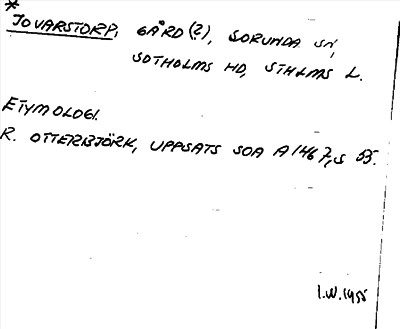 *
JOVARSTORP, GÅRD (?), SORUNDA SN,
SOTHOLMS HD, STHLMS L.
ETYMOLOGI.
R. OTTERBJÖRK, UPPSATS SOA A 1467, S 55.
I.W. 1955